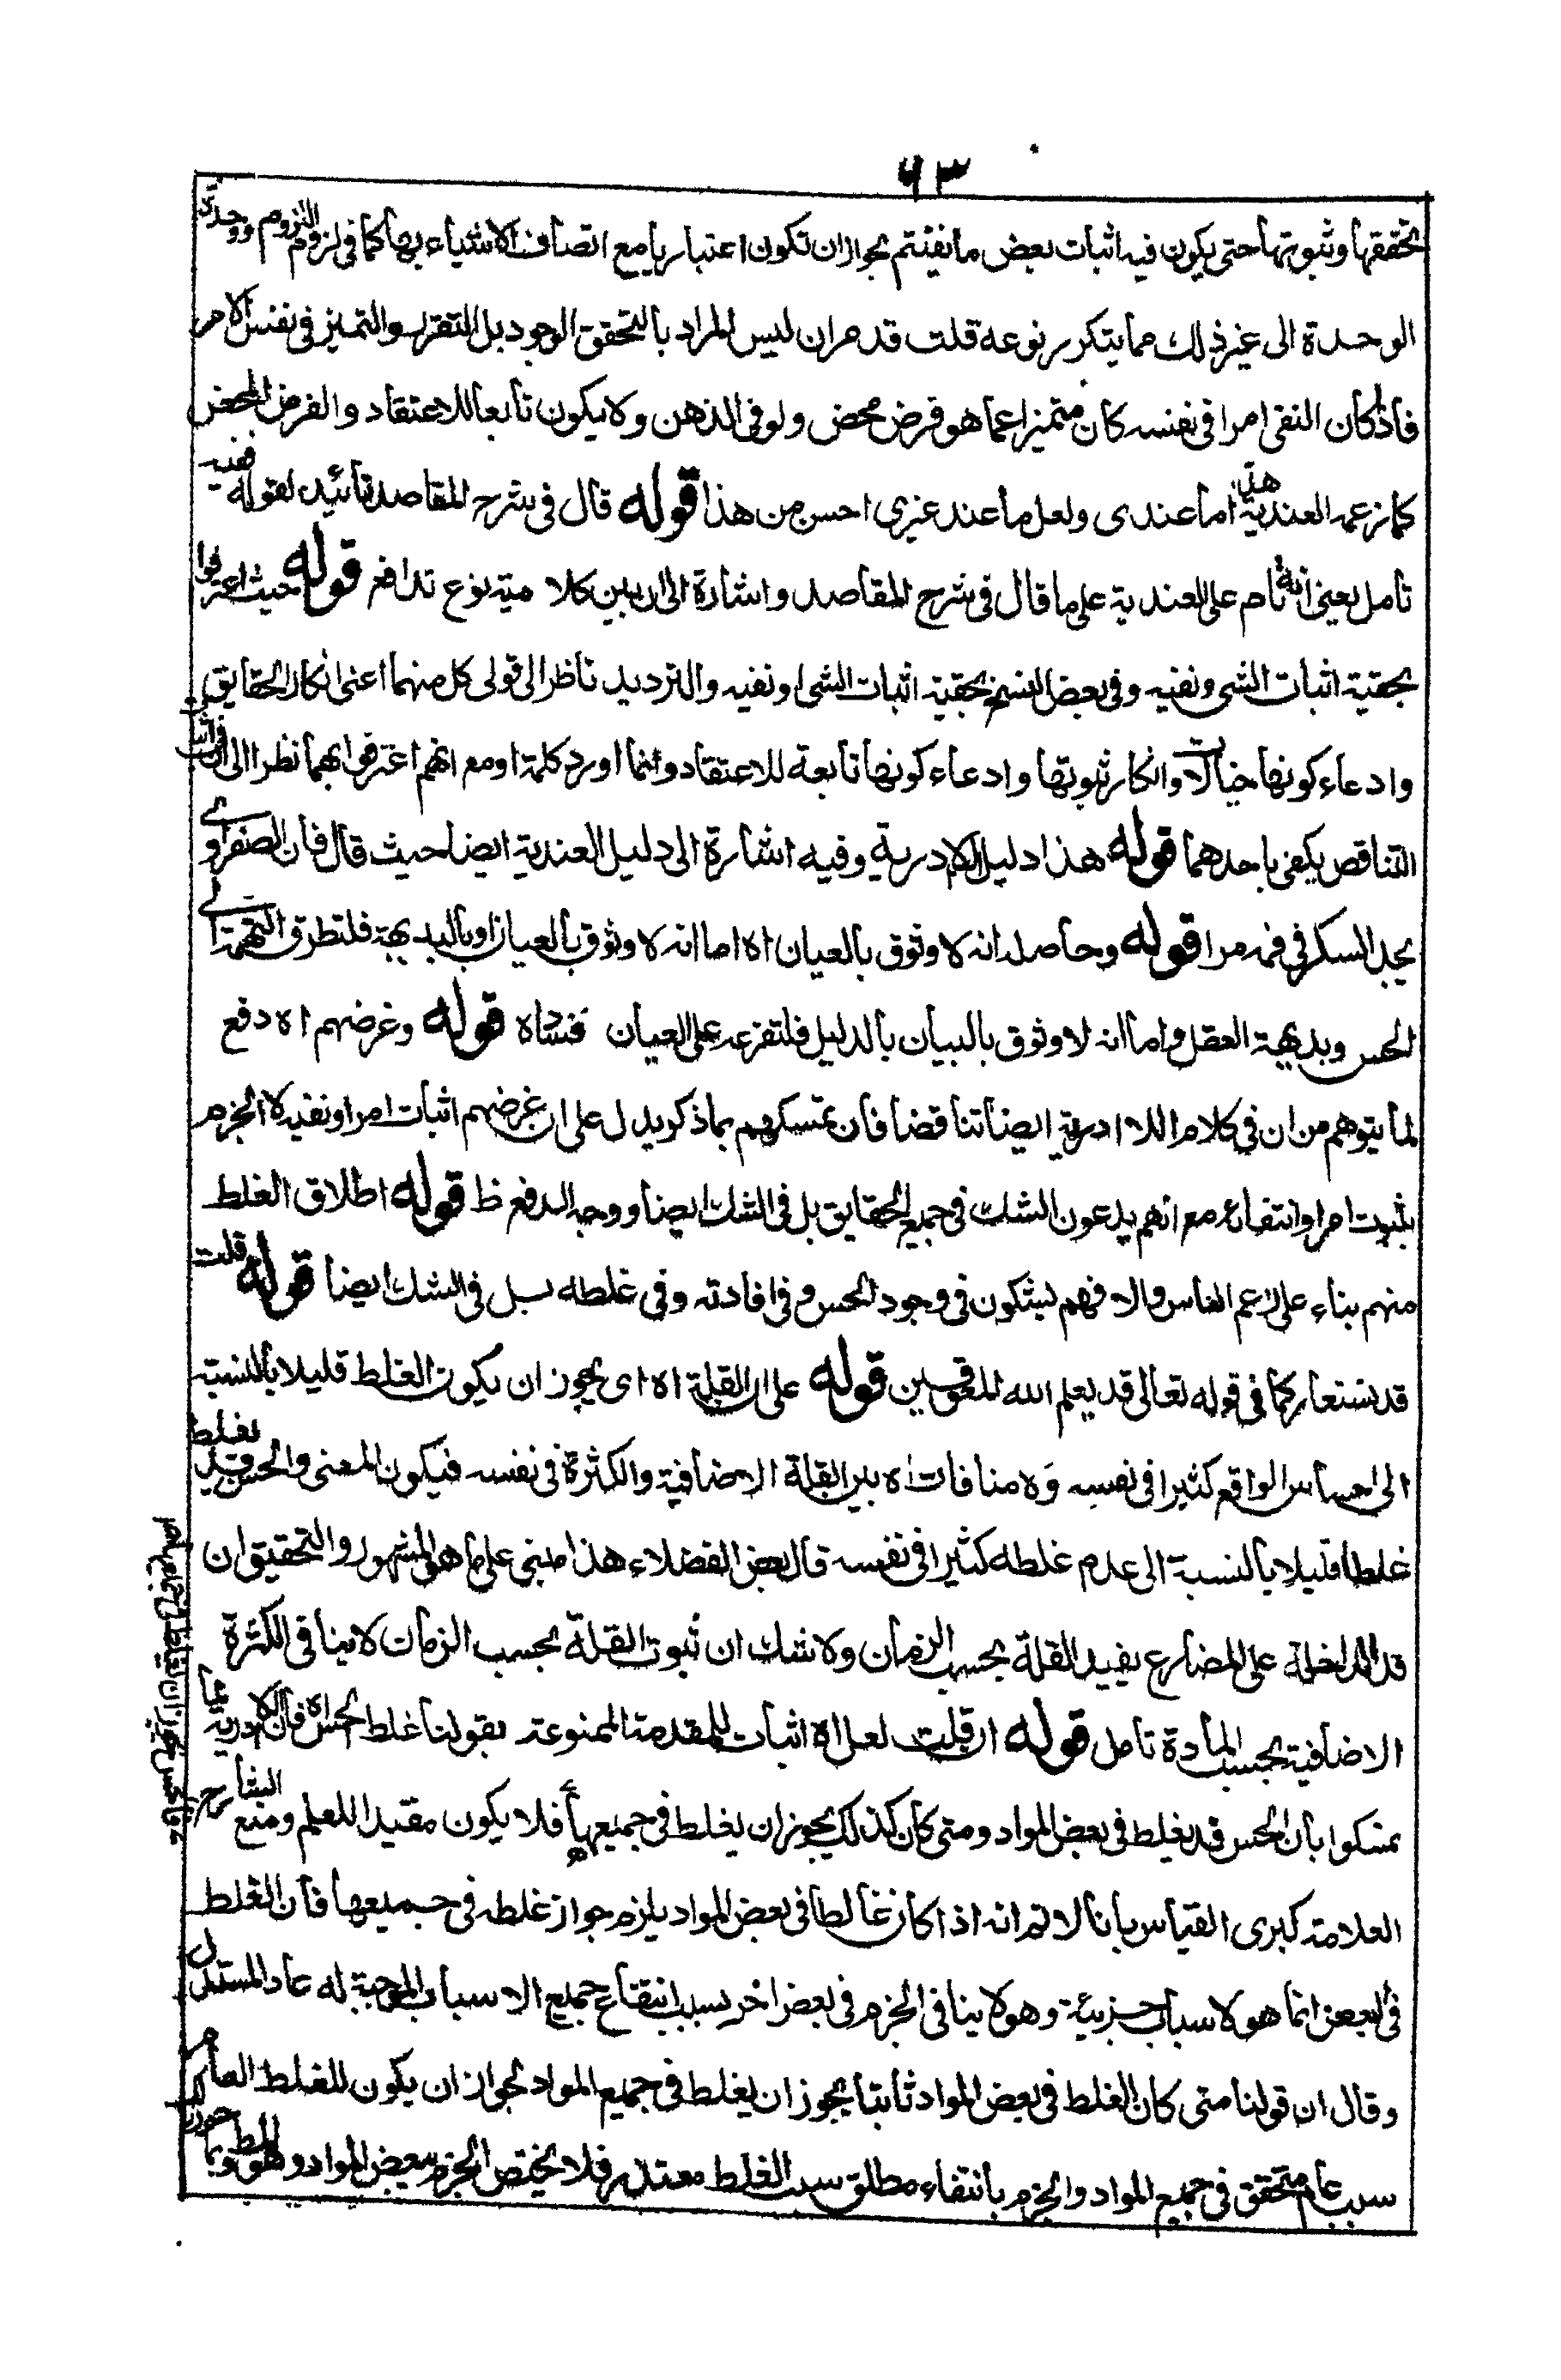 ٦٣
تحققها وثبوتها حتى يكون فيه اثبات بعض ما نفيتم بجواز ان تكون اعتباريا مع اتصاف الاشياء بها كما في لزوم اللزوم ووحدة
الوحدة الى غير ذلك مما يتكرر نوعه قلت قد مر ان ليس المراد بالتحقق الوجود بل التقرر والتميز في نفس الامر
فاذا كان النفى امرا في نفسه كان متميزا عما هو فرض محض ولو في الذهن ولا يكون تابعا للاعتقاد والفرض المحض
كما زعمه العندية هذا ما عندى ولعل ما عند غيرى احسن من هذا قوله قال في شرح المقاصد تائيد لقوله ففيه
تامل يعنى انه تام على العندية على ما قال في شرح المقاصد واشارة الى ان بين كلاميه نوع تدافع قوله حيث اعترفوا
بحقية اثبات الشى ونفيه وفي بعض النسخ بحقية اثبات الشى او نفيه والترديد ناظر الى قولى كل منهما اعنى انكار الحقايق
وادعاء كونها خيالات وانكار ثبوتها وادعاء كونها تابعة للاعتقاد وانما اورد كلمة او مع انهم اعترفوا بهما نظرا الى ان
التناقض يكفى باحدهما قوله هذا دليل اللاادرية وفيه اشارة الى دليل العندية ايضا حيث قال فان الصفراوى
يجد السكر في فمه مرا قوله وحاصله انه لا وثوق بالعيان اه اما انه لا وثوق بالعيان او بالبديهة فلتطرق التهمة الى
الحس وبديهة العقل واما انه لا وثوق بالبيان بالدليل فلتفرعه على العيان ففساده قوله وغرضهم اه دفع
لما يتوهم من ان في كلام اللاادرية ايضا تناقضا فان تمسكهم بما ذكر يدل على ان غرضهم اثبات امر او نفيه لا الجزم
بثبوت امر او انتفاءه مع انهم يدعون الشك في جميع الحقايق بل في الشك ايضا ووجه الدفع ظ قوله اطلاق الغلط
منهم بناء على زعم الناس والا فهم يشكون في وجود الحس وفي افادته وفي غلطه بل في الشك ايضا قوله قلت
قد تستعار كما في قوله تعالى قد يعلم الله المعوقين قوله على ان القلة اه اى يجوز ان يكون الغلط قليلا بالنسبة
الى احساس الواقع كثيرا في نفسه ولا منافات اه بين القلة الاضافية والكثرة في نفسه فيكون المعنى والحس قد يغلط
غلطا قليلا بالنسبة الى عدم غلطه كثيرا في نفسه قال بعض الفضلاء هذا مبنى على ما هو المشهور والتحقيق ان
قد الداخلة على المضارع يفيد القلة بحسب الزمان ولا شك ان ثبوت القلة بحسب الزمان لا ينافى الكثرة
الاضافية بحسب المادة تامل قوله ان قلت لعل اه اثبات للمقدمة الممنوعة بقولنا غلط الحس اه فان اللاادرية لما
تمسكوا بان الحس قد يغلط في بعض المواد ومتى كان كذلك يجوز ان يغلط في جميعها فلا يكون مفيدا للعلم ومنع الشارح
العلامة كبرى القياس بانا لا نم انه اذا كان غالطا في بعض المواد يلزم جواز غلطه في جميعها فان الغلط
في البعض انما هو لاسباب جزئية وهو لا ينافى الجزم في بعض اخر بسبب انتفاع جميع الاسباب الموجبة له عاد المستدل
وقال ان قولنا متى كان الغلط في بعض المواد ثابتا يجوز ان يغلط في جميع المواد لجواز ان يكون للغلط العام
سبب عام متحقق في جميع المواد والجزم بانتفاء مطلق سبب الغلط متعذر فلا يختص الجزم ببعض المواد وهو المط وبما